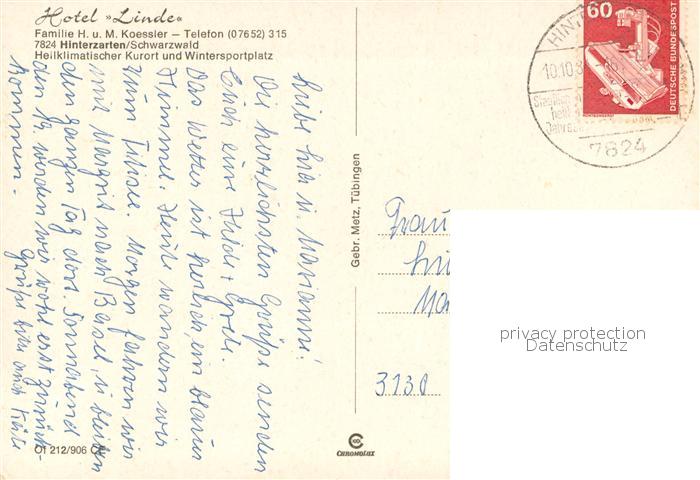 Hotel »Linde«
Familie H. u. M. Koessler — Telefon (07652) 315
7824 Hinterzarten/Schwarzwald
Heilklimatischer Kurort und Wintersportplatz
liebe Marianne!
Die herzlichsten Grüße senden
Euch eine Hilde +
Das Wetter ist herrlich, ein blauer
Himmel. Heute wandern wir
zum Titisee. Morgen fahren wir
mit Margrit nach Basel, u. bleiben
den ganzen Tag dort. Sonnabend
den werden wir wohl erst zurück-
kommen.
Grüße bitte auch Käte
O1 212/906 C
Gebr. Metz, Tübingen
CHROMOLUX
60
DEUTSCHE BUNDESPOST
HINT
10.10.8
7824
Frau
3130
privacy protection
Datenschutz